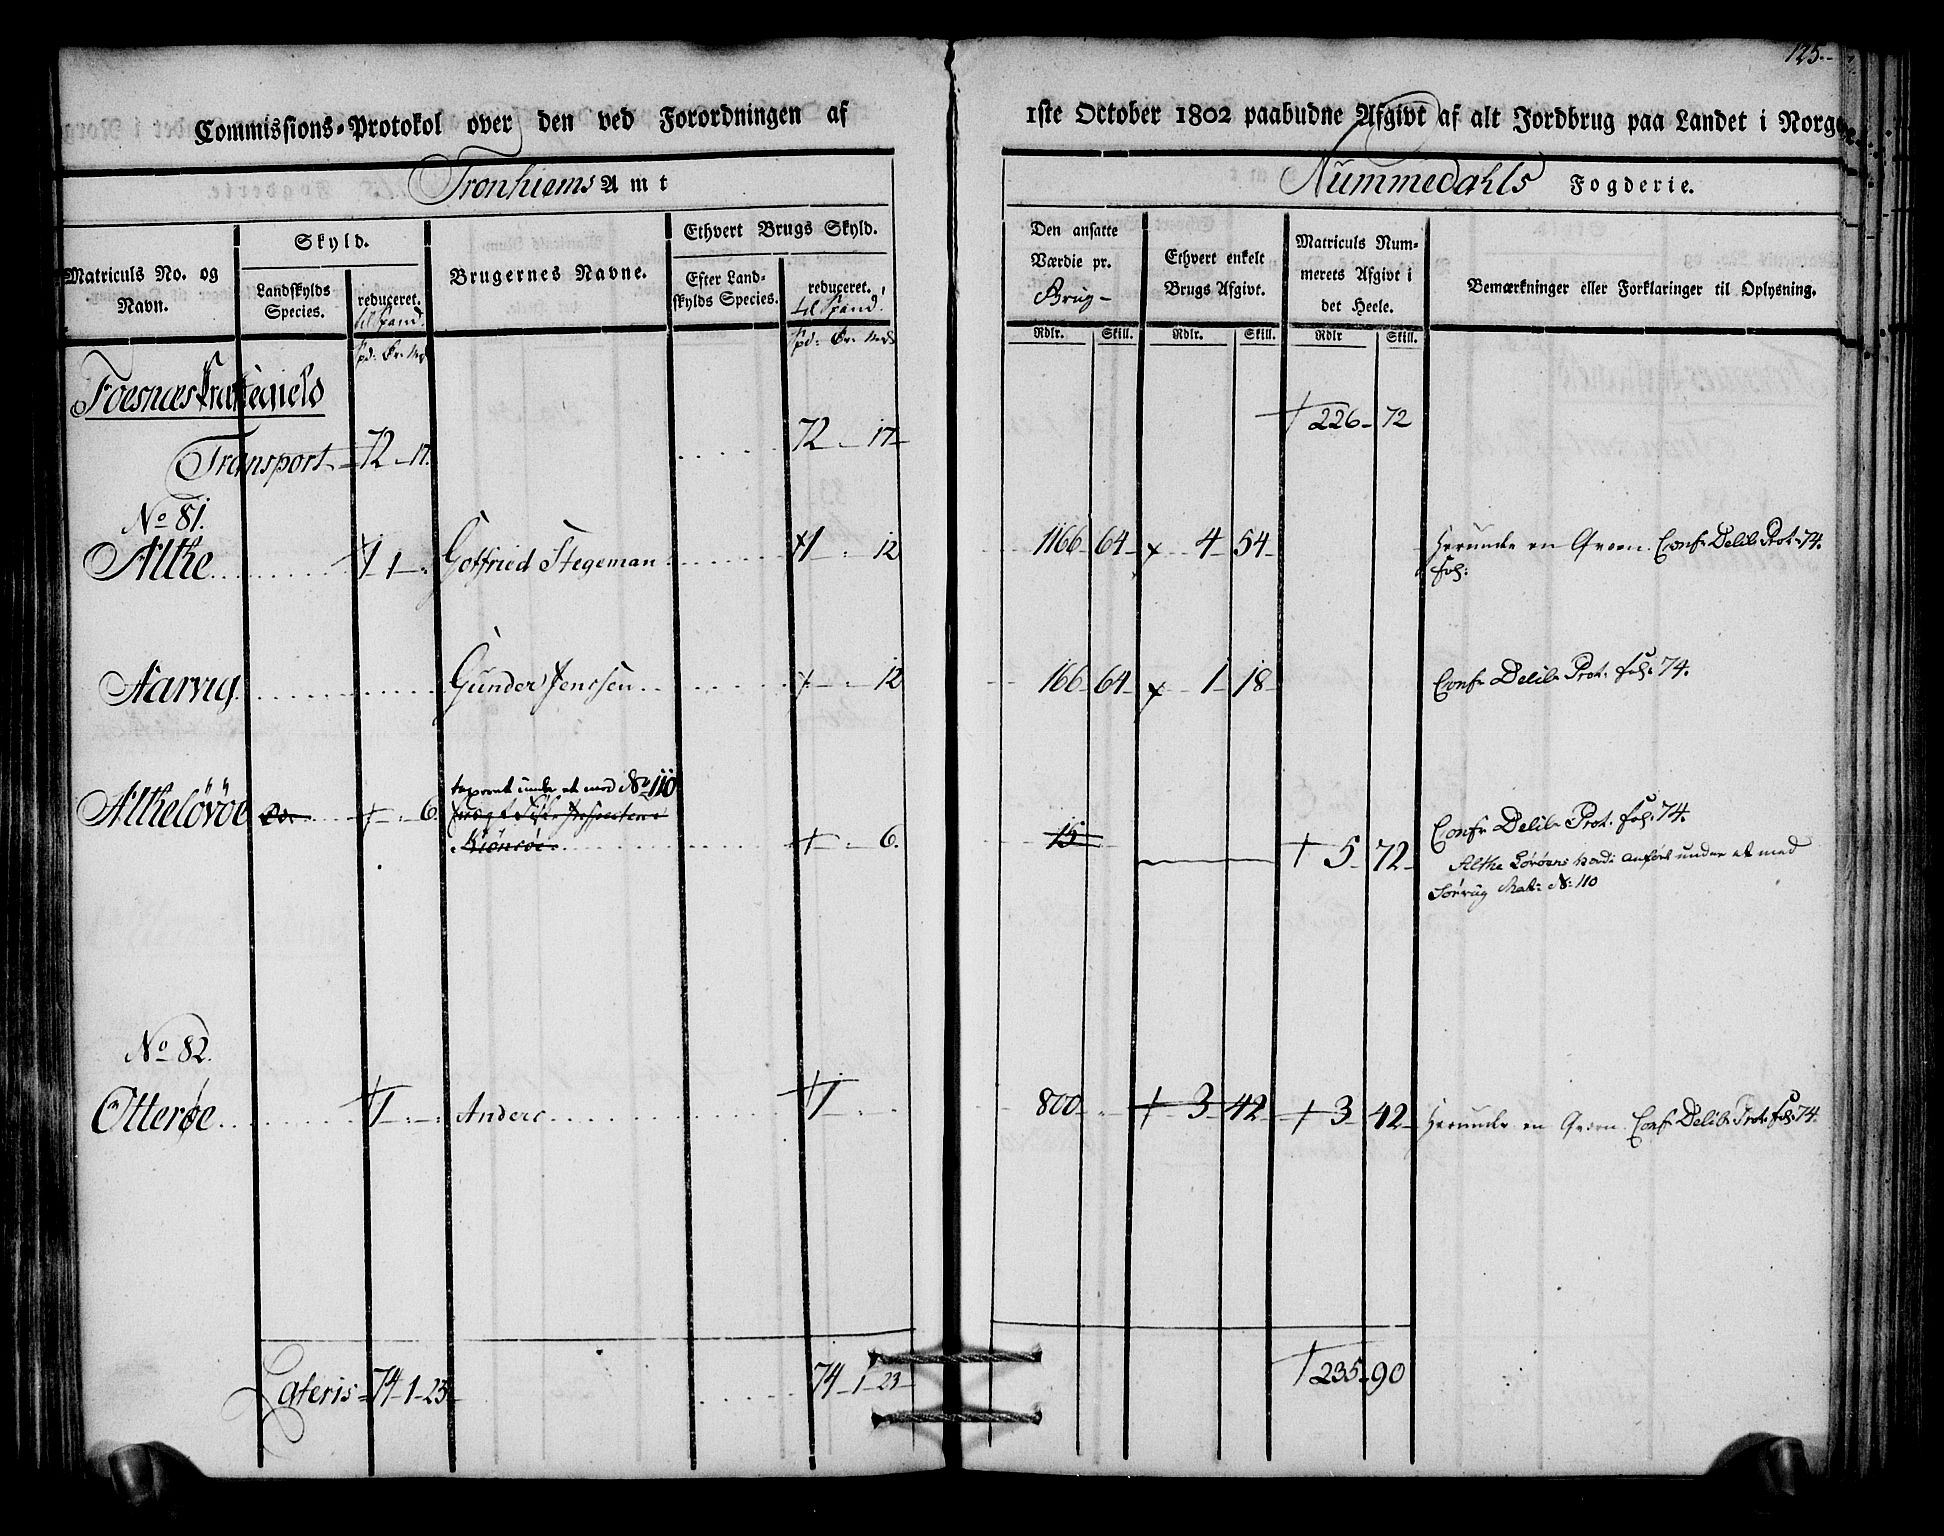 125.
Commissions-Protokol over den ved Forordningen af 1ste October 1802 paabudne Afgivt af alt Jordbrug paa Landet i Norge.
Tronhiems Amt
Nummedahls Fogderie.
Matriculs No. og Navn.
Skyld.
Landskylds Species.
reduceret. til Spand!
Brugernes Navne.
Ethvert Brugs Skyld.
Efter Landskylds Species.
reduceret. til Spand!
Den ansatte Værdie pr. Brug-
Ethvert enkelt Brugs Afgivt.
Matriculs Nummerets Afgivt i det Heele.
Bemærkninger eller Forklaringer til Oplysning.
Spd: Ør: Mrk
Spd: Ør: Mrk
Rdlr. Skill. Rdlr. Skill. Rdlr Skill.
Foesnæs Præstegield
Transport 72 - 17. 72 - 17- † 226- 72
No 81.
Althe 1 1 Gotfried Stegeman 1 12 1166- 64- x 4 54- Herunde en Qværn. Conf. Delib. Prot. 74.
fol:
Aarvig Gunder Jenssen 12 166- 64- x 1 18- Conf. Delib. Prot. fol. 74.
No 110
Altheløvøe 6. 6. 15 † 5- 72- Conf. Delib. Prot. fol. 74.
Althe Løvøens anført under et med
Sørvig Mat: No: 110
No 82.
Otterøe 1 Anders 1 800- † 3- 42- † 3- 42- Herunde en Qværn. Conf. Delib. Prot. fol. 74.
Lateris 74-1-23- 74-1-23- † 235-90